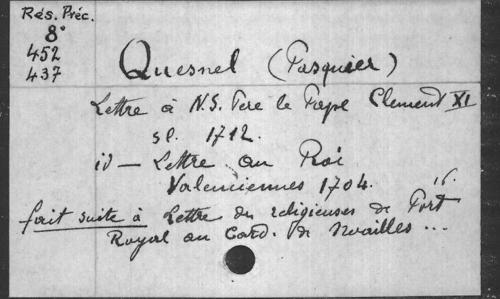 Rés. Préc.
8°
452
437
Quesnel (Pasquier)
Lettre à N.S. Pere le Pape Clement XI
sl. 1712.
id — Lettre au Roi
Valenciennes 1704. 16.
fait suite à Lettre des religieuses de Port
Royal au Card. de Noailles ...